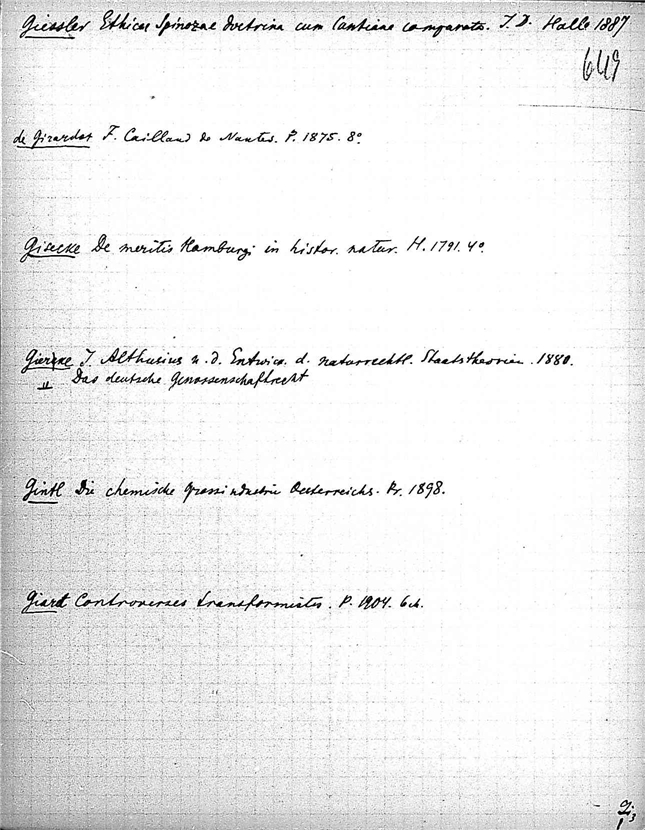 Giessler Ethices Spinozae doctrina cum Cantiana comparata. I. D. Halle 1887
649
de Girardot F. Cailliaud de Nantes. P. 1875. 8°
Gisecke De meritis Hamburgi in histor. natur. H. 1791. 4°.
Gierke J. Althusius u. d. Entwick. d. naturrechtl. Staatstheorien. 1880.
" Das deutsche Genossenschaftrecht
Gintl Die chemische Grossindustrie Oesterreichs. Pr. 1898.
Giard Controverses transformistes. P. 1904.
Gi